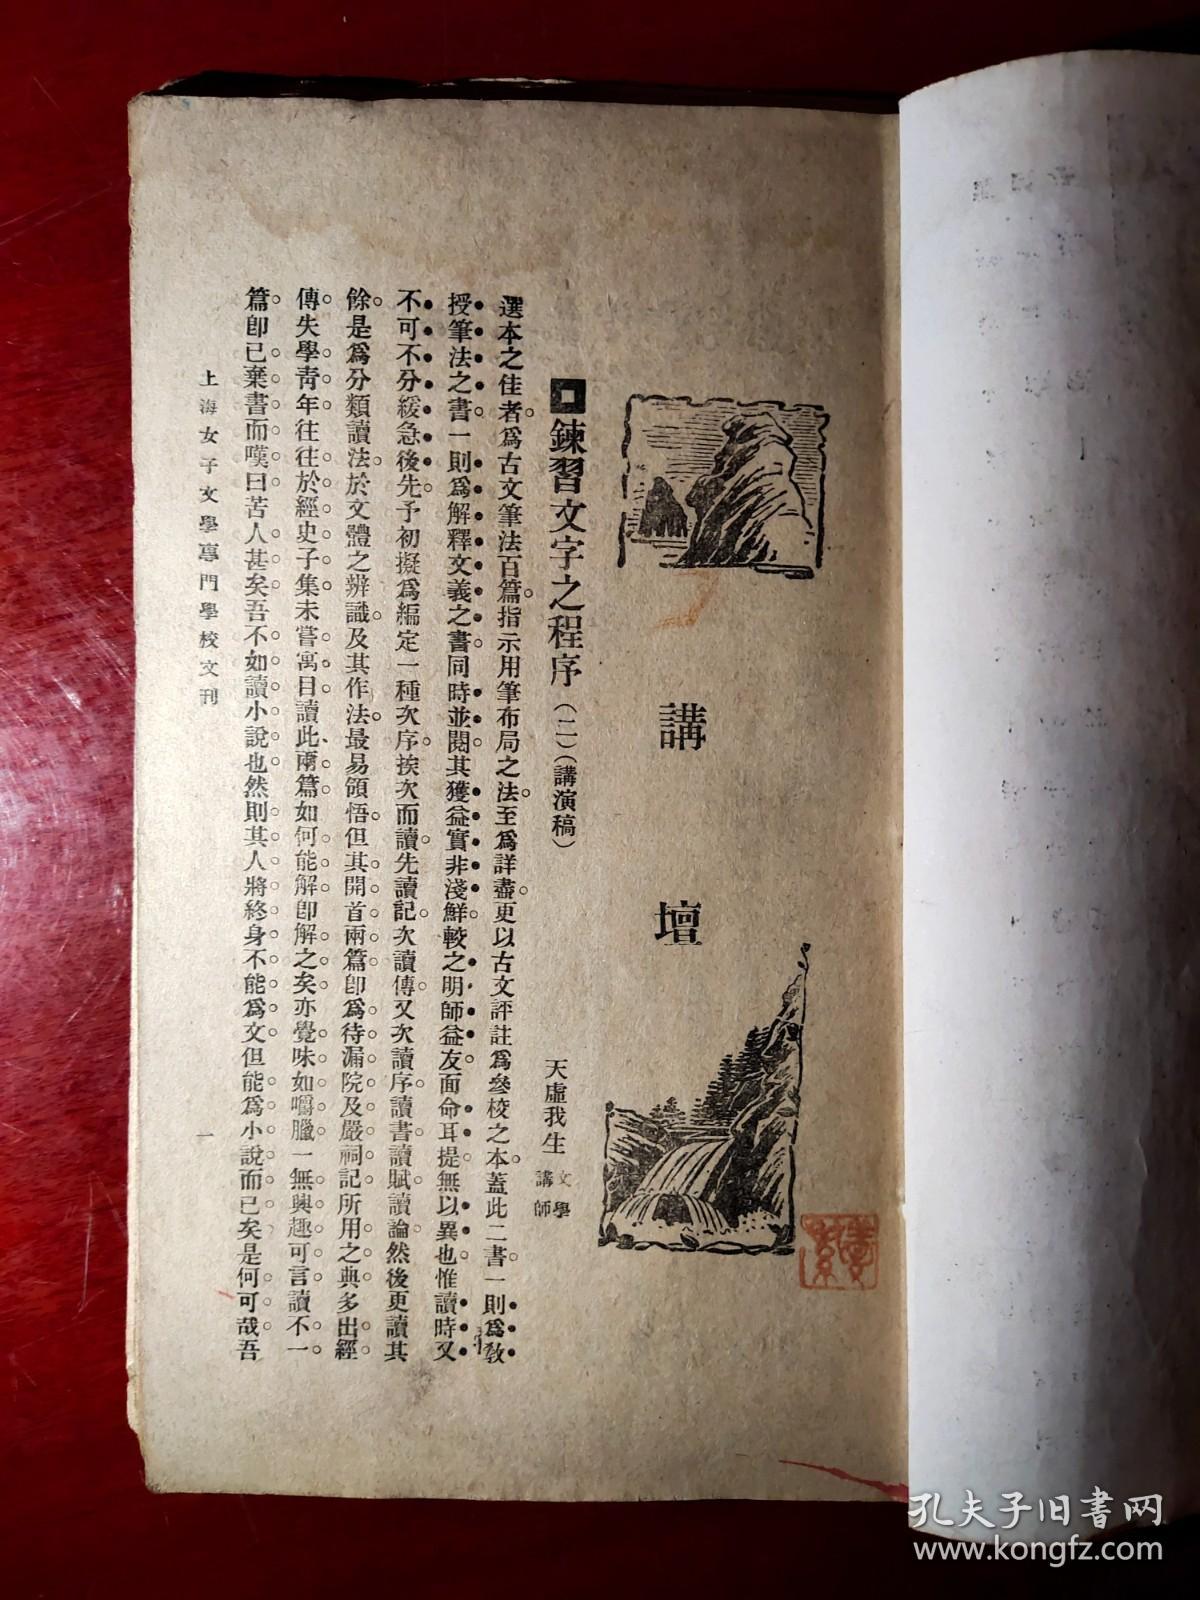 講壇
鍊習文字之程序（二）（講演稿）
天虛我生 文學講師
選本之佳者爲古文筆法百篇指示用筆布局之法至爲詳盡更以古文評註爲參校之本蓋此二書一則爲敎
授筆法之書一則爲解釋文義之書同時並閱其獲益實非淺鮮較之明師益友面命耳提無以異也惟讀時又
不可不分緩急後先予初擬爲編定一種次序挨次而讀先讀記次讀傳又次讀序讀書讀賦讀論然後更讀其
餘是爲分類讀法於文體之辨識及其作法最易領悟但其開首兩篇卽爲待漏院及嚴祠記所用之典多出經
傳失學靑年往往於經史子集未嘗寓目讀此兩篇如何能解卽解之矣亦覺味如嚼臘一無興趣可言讀不一
篇卽已棄書而嘆曰苦人甚矣吾不如讀小說也然則其人將終身不能爲文但能爲小說而已矣是何可哉吾
上海女子文學專門學校文刊
一
孔夫子旧书网
www.kongfz.com